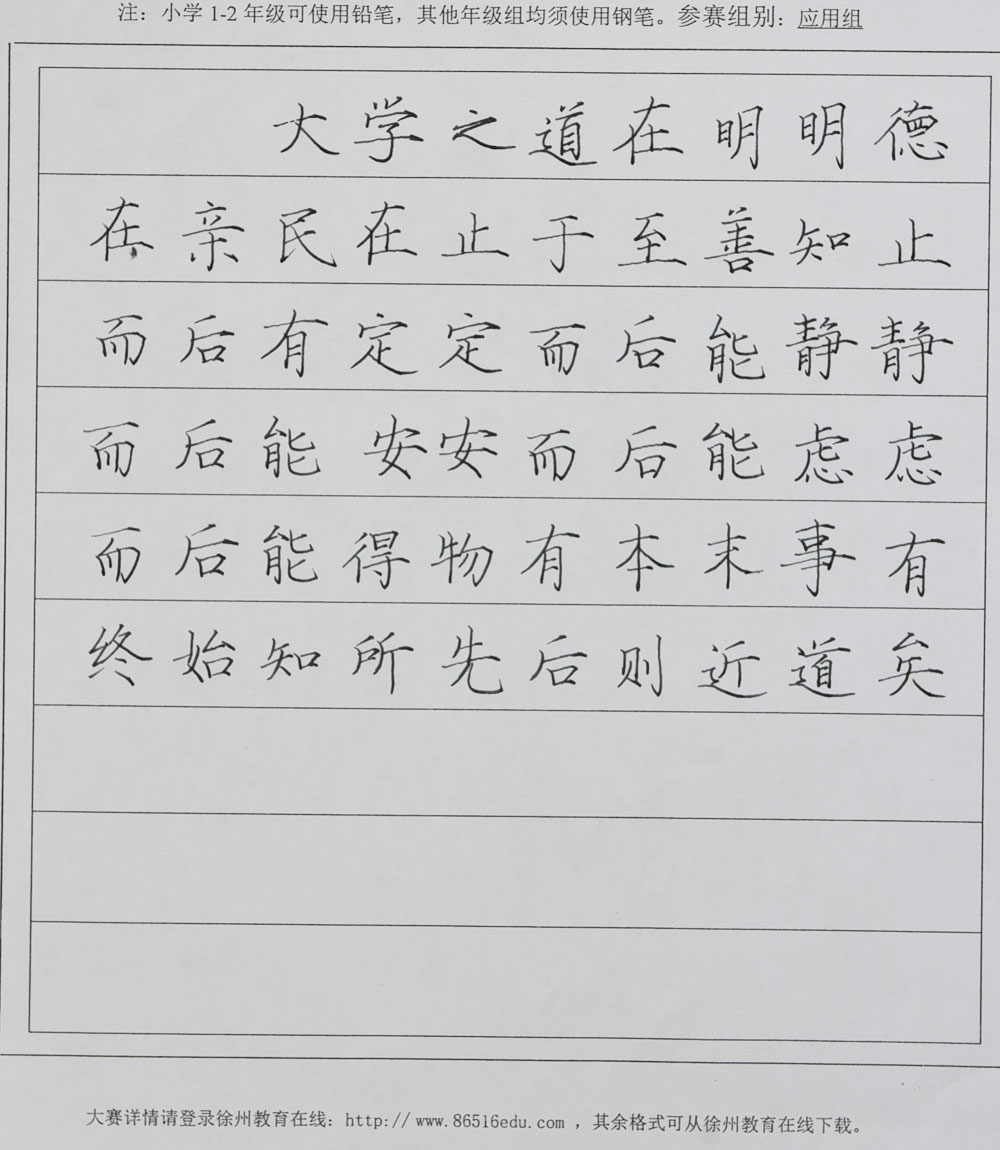 注：小学1-2年级可使用铅笔，其他年级组均须使用钢笔。参赛组别：应用组
大学之道在明明德
在亲民在止于至善知止
而后有定定而后能静静
而后能安安而后能虑虑
而后能得物有本末事有
终始知所先后则近道矣
大赛详情请登录徐州教育在线：http://www.86516edu.com，其余格式可从徐州教育在线下载。